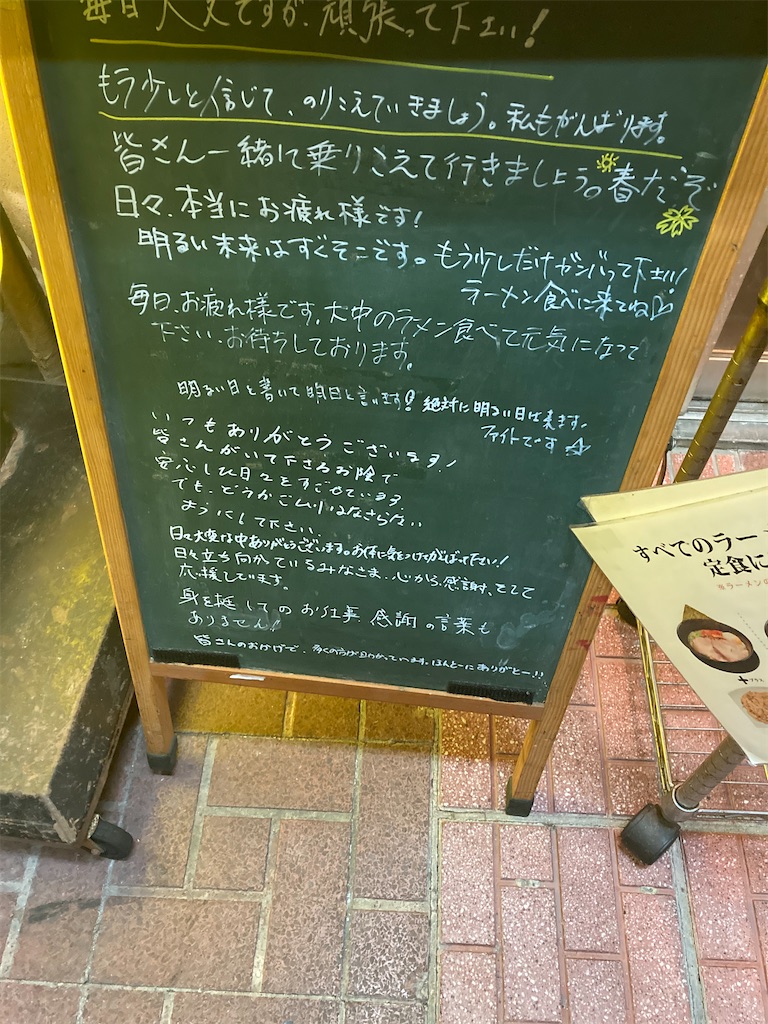 毎日大丈ですが、頑張って下さい!
もう少しと信じて、のりこえていきましょう。私もがんばります。
皆さん一緒に乗りこえて行きましょう。春だぞ
日々、本当にお疲れ様です!
明るい未来はすぐそこです。もう少しだけガンバって下さい!
ラーメン食べに来てね♡
毎日、お疲れ様です。大中のラメン食べて元気になって
下さい、お待ちしております。
明るい日と書いて明日と言います! 絶対に明るい日は来ます。
ファイトです☆
いつもありがとうございます!
皆さんがいて下さるお陰で
安心した日々をすごせています
でも、どうかごムリはなさらない
ようにして下さい、
日々大変な中ありがとうございます。お体に気をつけてがんばって下さい!
日々立ち向かっているみなさま、心から、感謝、そして
応援しています。
身を挺してのお仕事 感謝の言葉も
ありません!
皆さんのおかげで、多くの方が助かっています。ほんとーにありがとー!!
すべてのラー
定食に
※ラーメンの
+プラス